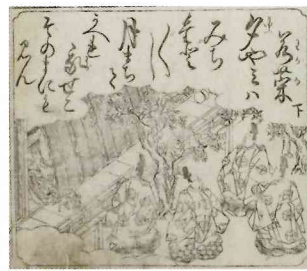 若菜 下
夕やミハ
みち
たと
〳〵し
月まちて
かへれ
我せこ
そのまにも
みん